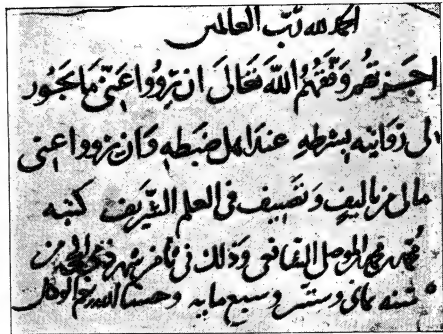 الحمد لله رب العالمين
اجزتهم وفقهم الله تعالى ان يرووا عني ما يجوز
لي روايته بشرطه عند اهل ضبطه وان يرووا عني
مالي من تاليف وتصنيف في العلم الشريف كتبه
محمد بن محمد الموصلي الشافعي وذلك في شهر ذي الحجة من
سنة ثماني وستين وسبع مايه وحسبنا الله ونعم الوكيل